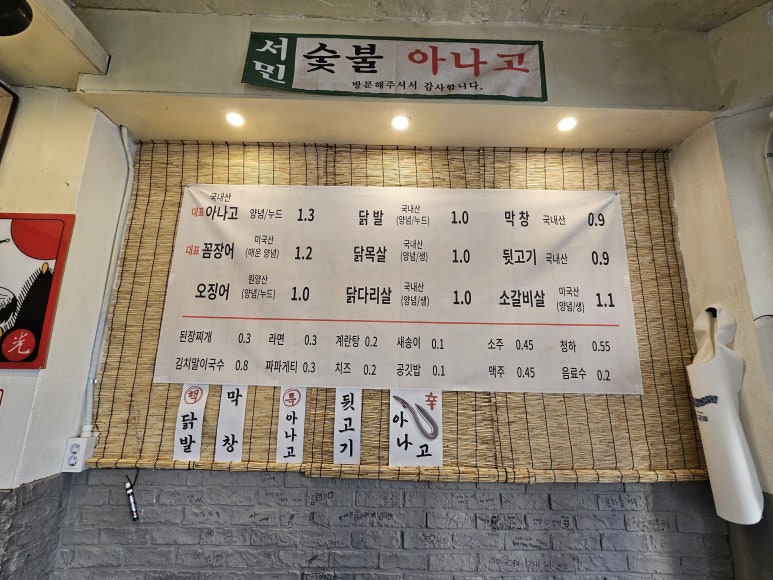 서민 숯불 아나고
방문해주셔서 감사합니다.
국내산
대표 아나고 양념/누드 1.3
닭발 국내산 (양념/누드) 1.0
막창 국내산 0.9
대표 꼼장어 미국산 (매운 양념) 1.2
닭목살 국내산 (양념/생) 1.0
뒷고기 국내산 0.9
오징어 원양산 (양념/누드) 1.0
닭다리살 국내산 (양념/생) 1.0
소갈비살 미국산 (양념/생) 1.1
된장찌개 0.3 라면 0.3 계란탕 0.2 새송이 0.1 소주 0.45 청하 0.55
김치말이국수 0.8 짜파게티 0.3 치즈 0.2 공깃밥 0.1 맥주 0.45 음료수 0.2
닭발
막창
특 아나고
뒷고기
辛 아나고
光